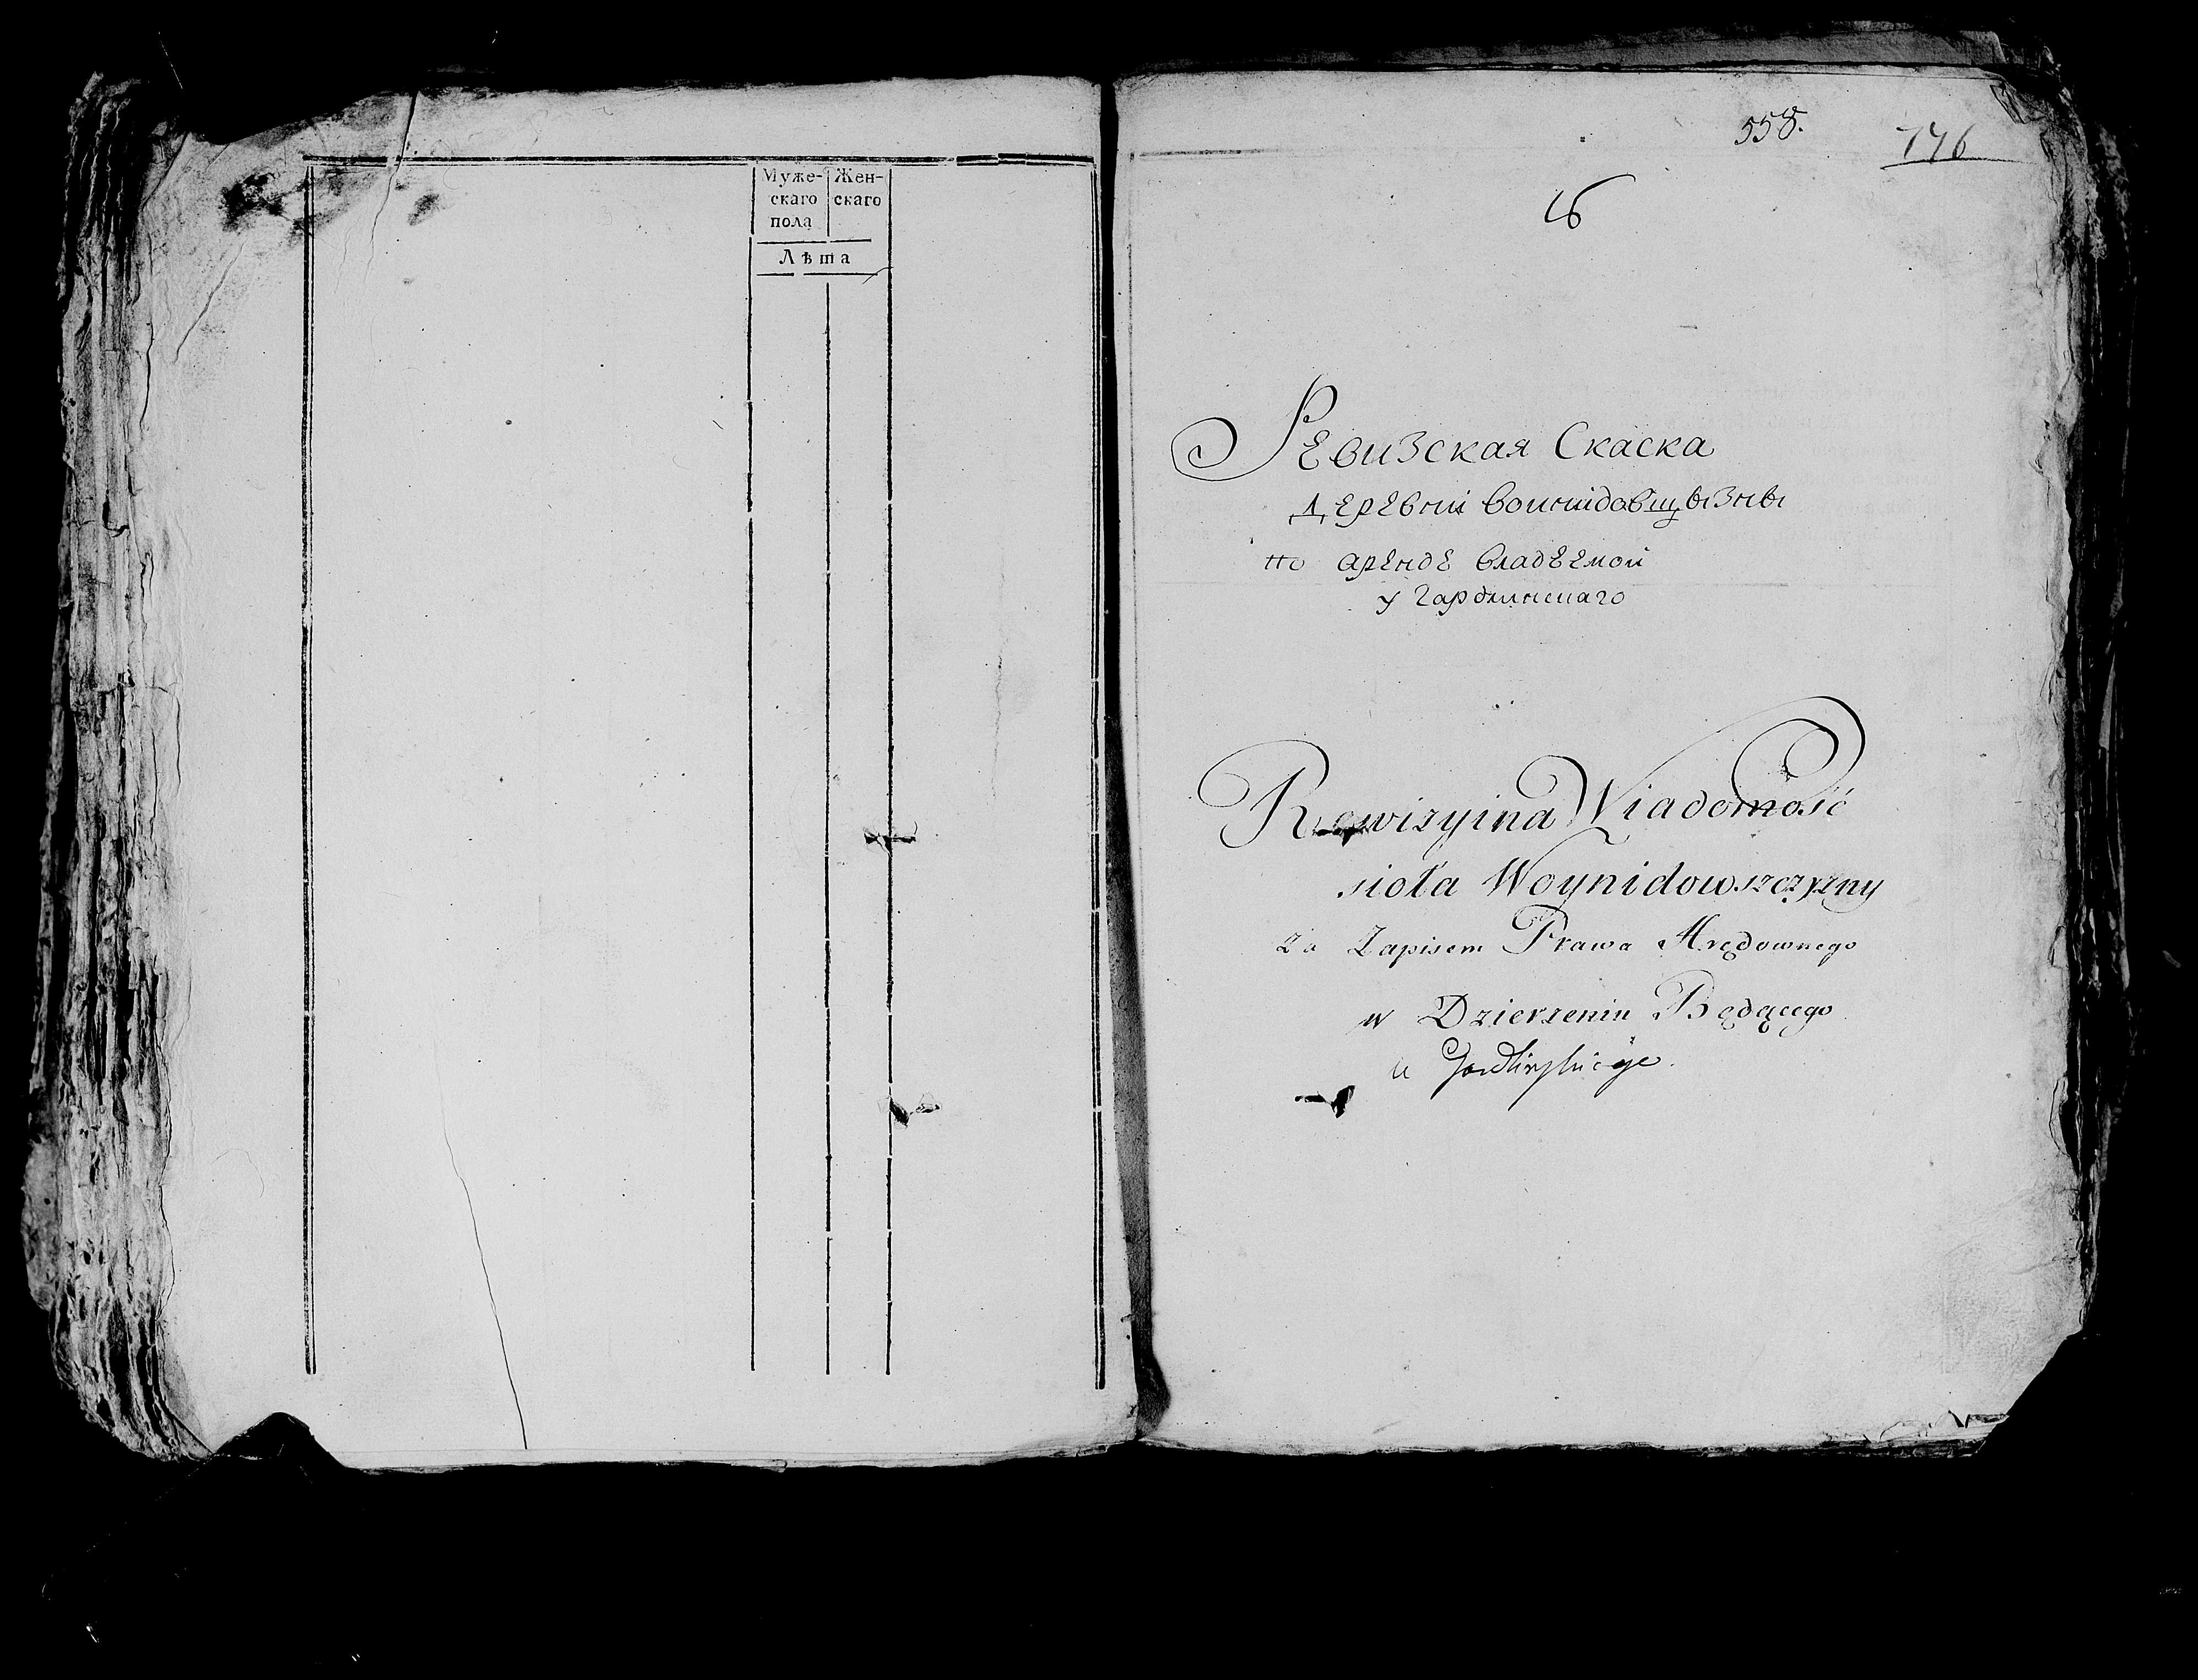 Муже-
скаго
пола
Жен-
скаго
Лѣта
558.
746
16
Ревизская Скаска
Деревни Воинидовщызны
по арендѣ владѣемой
у
Rewizyina Wiadomość
sioła Woynidowszczyzny
za Zapisem Prawa Arędownego
w Dzierzeniu Będącego
u